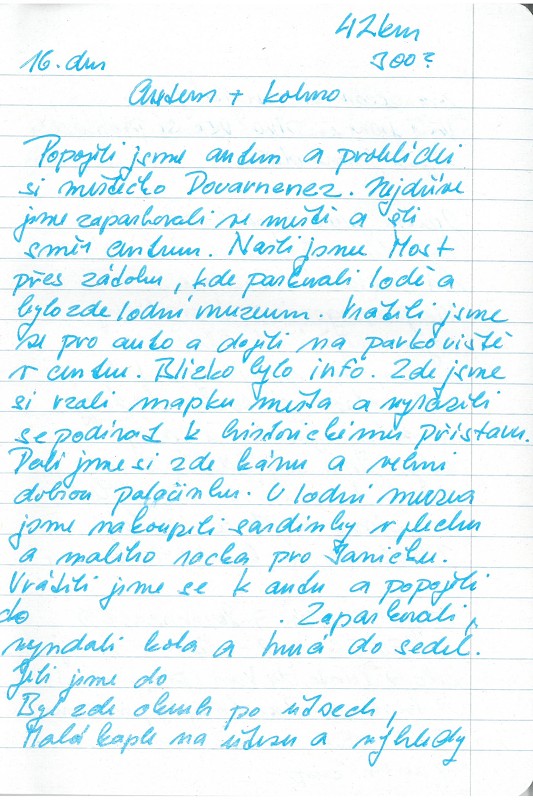 42km
16. den 300?
Autem + kolmo
Popojeli jsme autem a prohlédli
si městečko Douarnenez. Nejdříve
jsme zaparkovali ve městě a šli
směr centrum. Našli jsme Most
přes zátoku, kde parkovali lodě a
bylo zde lodní muzeum. Vrátili jsme
se pro auto a dojeli na parkoviště
v centru. Blízko bylo info. Zde jsme
si vzali mapku města a vyrazili
se podívat k historickému přístavu.
Dali jsme si zde kávu a velmi
dobrou palačinku. U lodní muzea
jsme nakoupili sardinky v plechu
a malého racka pro Janičku.
Vrátili jsme se k autu a popojeli
do . Zaparkovali,
vyndali kola a hurá do sedel.
Jeli jsme do
Byl zde okruh po útesech,
Malá kaple na útesu a výhledy